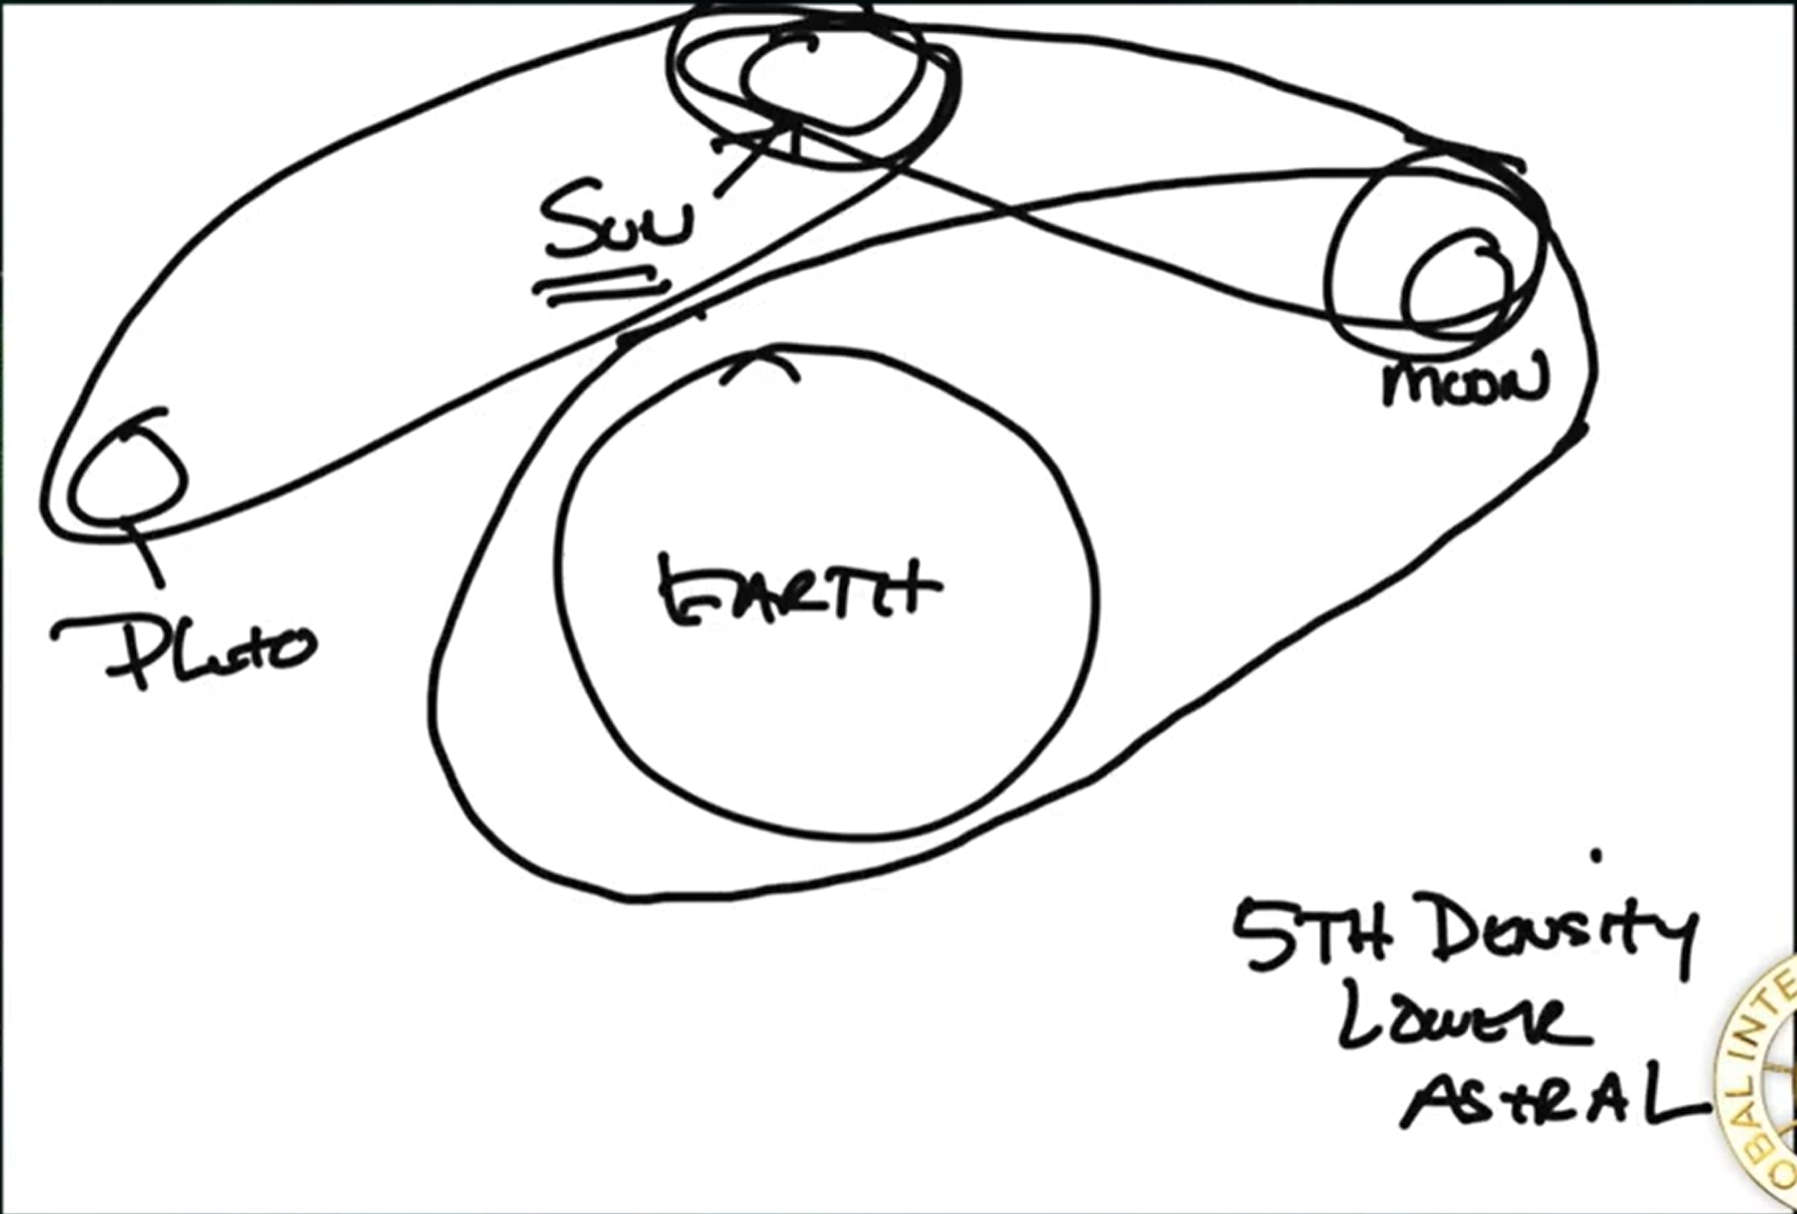 Sun
MOON
EARTH
Pluto
5TH Density
Lower
AstRAL
OBAL INTE